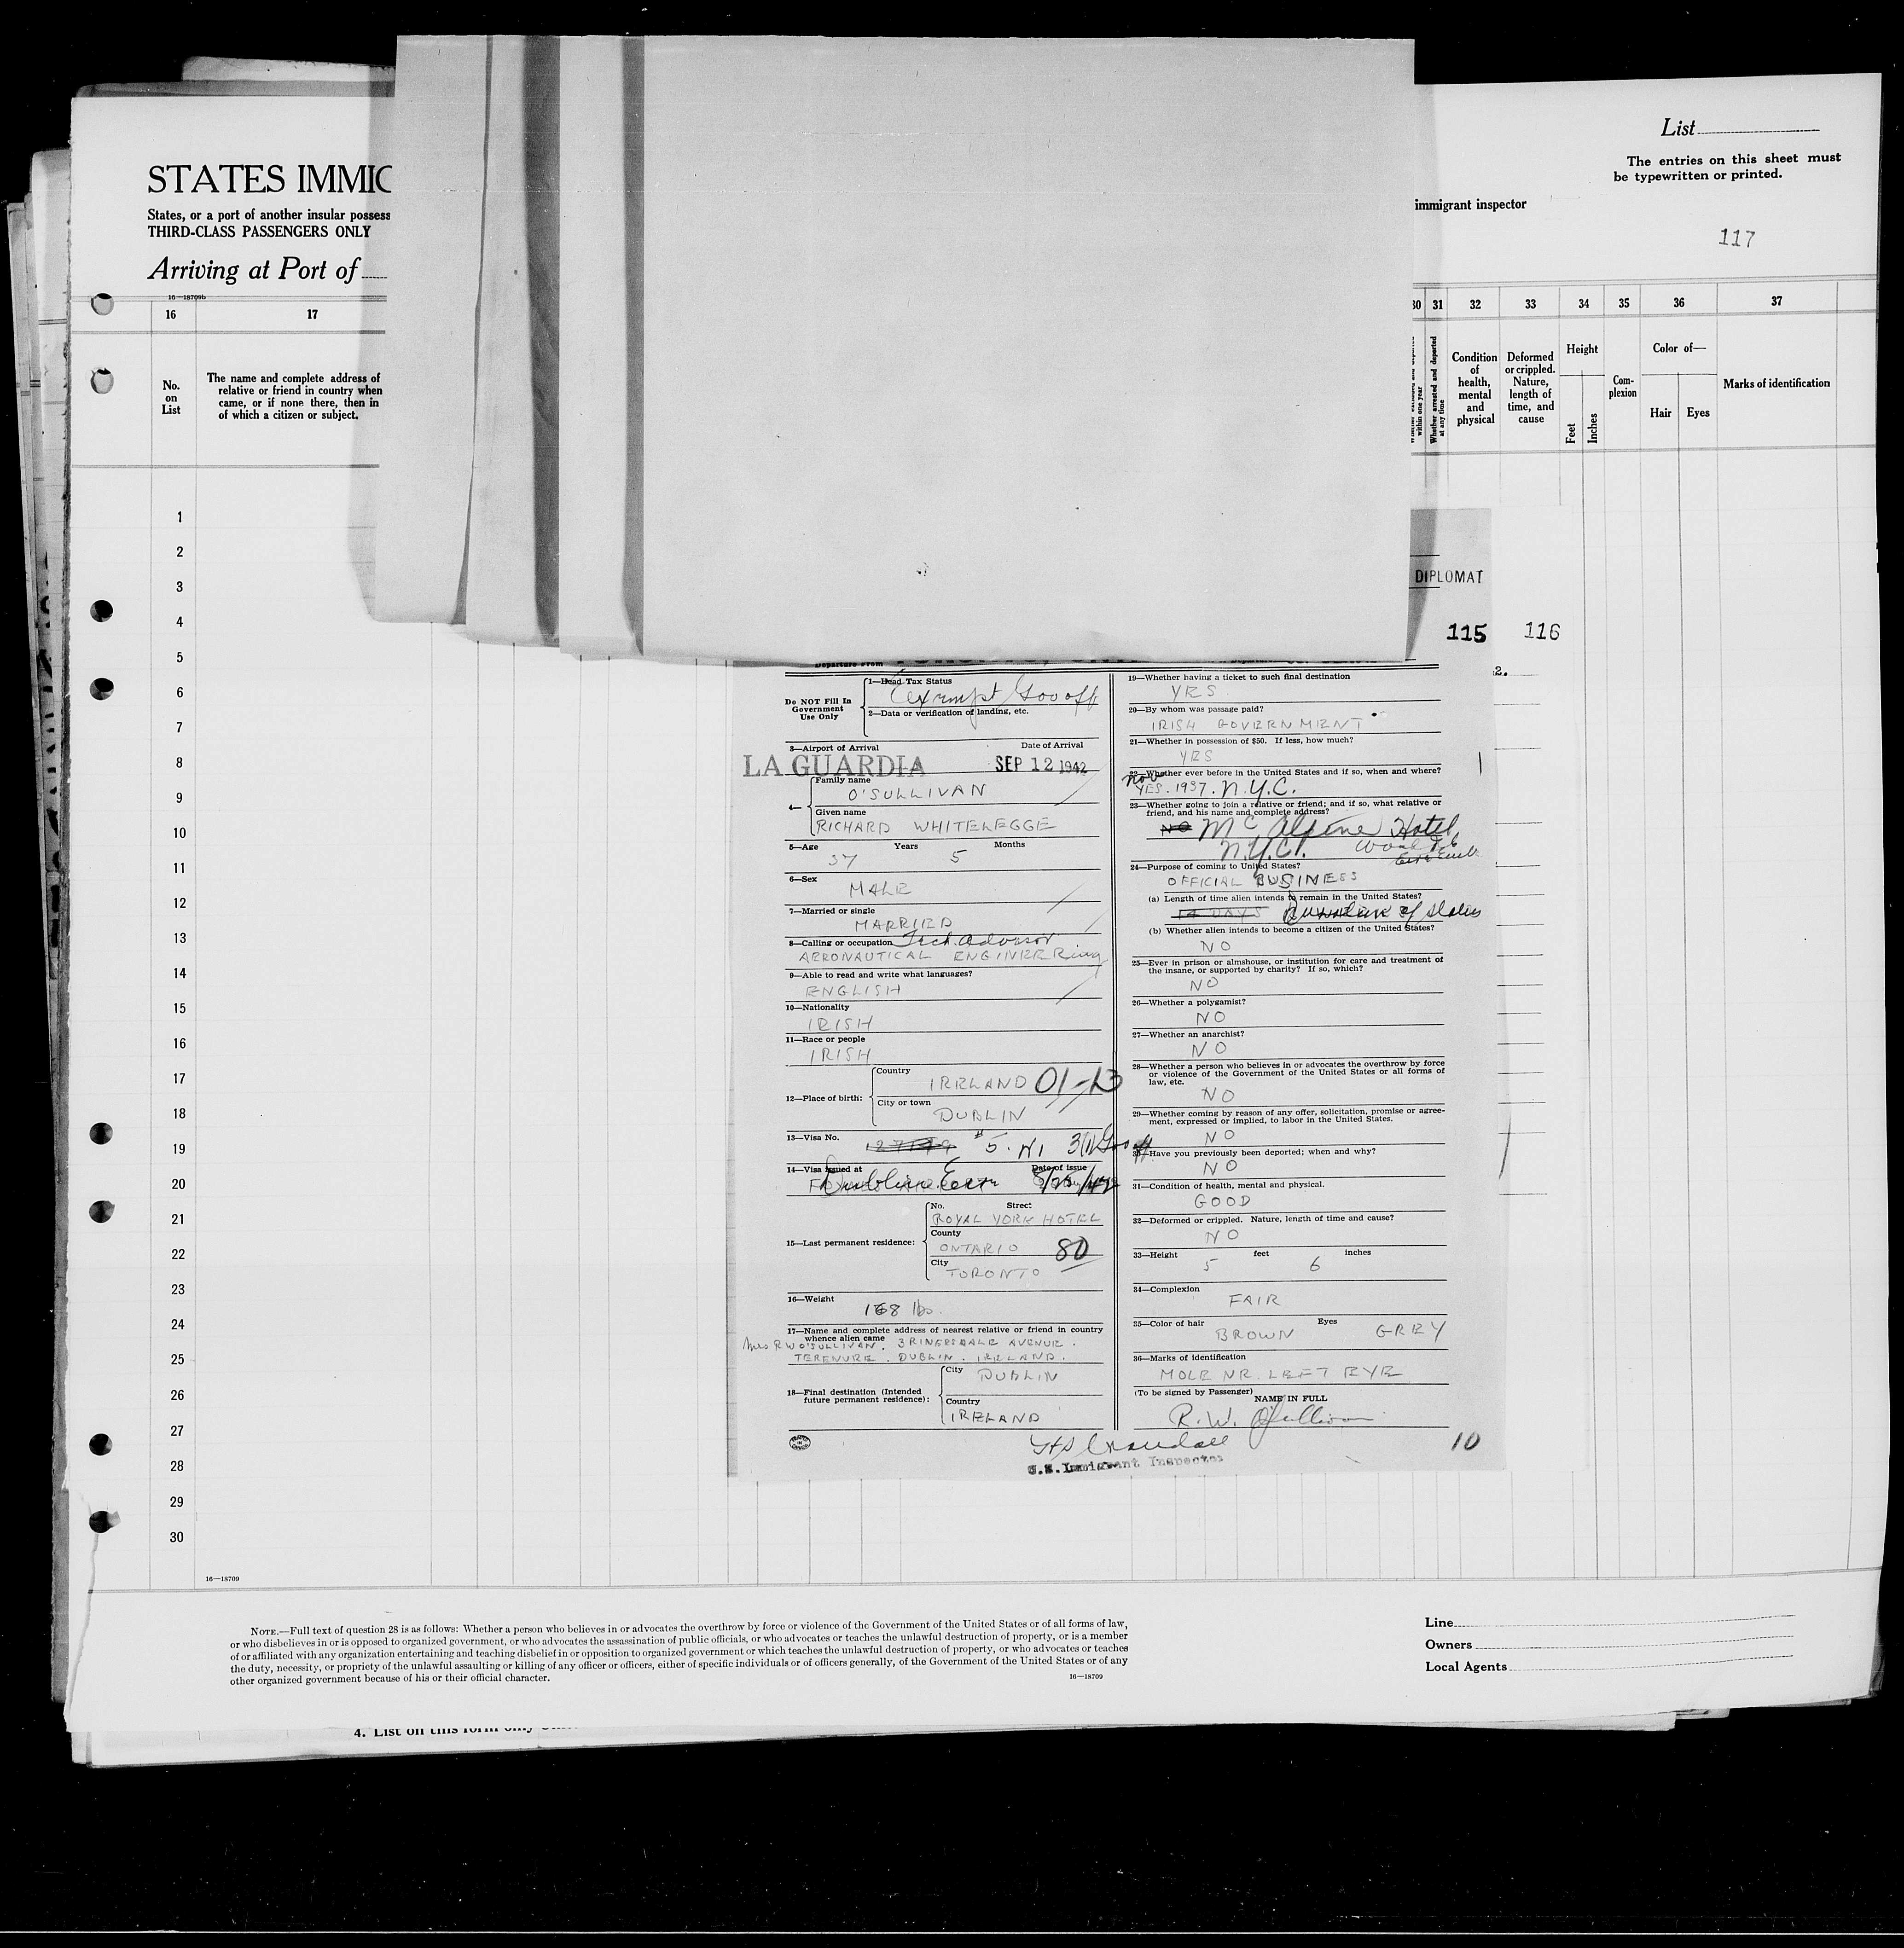 List
The entries on this sheet must
be typewritten or printed.
STATES IMMIG
States, or a port of another insular possess
THIRD-CLASS PASSENGERS ONLY
immigrant inspector
117
Arriving at Port of
16—18709b
16 17
30 31 32 33 34 35 36 37
No.
on
List
The name and complete address of
relative or friend in country when
came, or if none there, then in
of which a citizen or subject.
within one year
Whether arrested and deported
at any time
Condition
of
health,
mental
and
physical
Deformed
or crippled.
Nature,
length of
time, and
cause
Height
Feet
Inches
Com-
plexion
Color of—
Hair
Eyes
Marks of identification
1
2
3
4
5
6
7
8
9
10
11
12
13
14
15
16
17
18
19
20
21
22
23
24
25
26
27
28
29
30
DIPLOMAT
115 116
2.
Departure From
Do NOT Fill In
Government
Use Only
1—Head Tax Status
Exempt Gov off
2—Data or verification of landing, etc.
3—Airport of Arrival Date of Arrival
LA GUARDIA SEP 12 1942
4—
Family name
O'SULLIVAN
Given name
RICHARD WHITELEGGE
5—Age Years Months
37 5
6—Sex
MALE
7—Married or single
MARRIED
8—Calling or occupation Tech. Advisor
AERONAUTICAL ENGINEERing
9—Able to read and write what languages?
ENGLISH
10—Nationality
IRISH
11—Race or people
IRISH
12—Place of birth:
Country
IRELAND 01-13
City or town
DUBLIN
13—Visa No.
#5
14—Visa issued at Date of issue
Dublin, Eire 8/25/42
15—Last permanent residence:
No. Street
ROYAL YORK HOTEL
County
ONTARIO 80
City
TORONTO
16—Weight
168 lbs.
17—Name and complete address of nearest relative or friend in country
whence alien came
Mrs R W O'SULLIVAN. 3 RINGSDALE AVENUE.
TERENURE. DUBLIN. IRELAND.
18—Final destination (Intended
future permanent residence):
City
DUBLIN
Country
IRELAND
19—Whether having a ticket to such final destination
YES
20—By whom was passage paid?
IRISH GOVERNMENT
21—Whether in possession of $50. If less, how much?
YES
22—Whether ever before in the United States and if so, when and where?
Nov
YES. 1937. N.Y.C.
23—Whether going to join a relative or friend; and if so, what relative or
friend, and his name and complete address?
NO Mc Alpine Hotel
N.Y.C.
24—Purpose of coming to United States?
OFFICIAL BUSINESS
(a) Length of time alien intends to remain in the United States?
14 DAYS Duration of status
(b) Whether alien intends to become a citizen of the United States?
NO
25—Ever in prison or almshouse, or institution for care and treatment of
the insane, or supported by charity? If so, which?
NO
26—Whether a polygamist?
NO
27—Whether an anarchist?
NO
28—Whether a person who believes in or advocates the overthrow by force
or violence of the Government of the United States or all forms of
law, etc.
NO
29—Whether coming by reason of any offer, solicitation, promise or agree-
ment, expressed or implied, to labor in the United States.
NO
30—Have you previously been deported; when and why?
NO
31—Condition of health, mental and physical.
GOOD
32—Deformed or crippled. Nature, length of time and cause?
NO
33—Height feet inches
5 6
34—Complexion
FAIR
35—Color of hair Eyes
BROWN GREY
36—Marks of identification
MOLE NR. LEFT EYE
(To be signed by Passenger)
NAME IN FULL
R. W. O'Sullivan
Crandall
U.S. Immigrant Inspector
10
16—18709
NOTE.—Full text of question 28 is as follows: Whether a person who believes in or advocates the overthrow by force or violence of the Government of the United States or of all forms of law,
or who disbelieves in or is opposed to organized government, or who advocates the assassination of public officials, or who advocates or teaches the unlawful destruction of property, or is a member
of or affiliated with any organization entertaining and teaching disbelief in or opposition to organized government or which teaches the unlawful destruction of property, or who advocates or teaches
the duty, necessity, or propriety of the unlawful assaulting or killing of any officer or officers, either of specific individuals or of officers generally, of the Government of the United States or of any
other organized government because of his or their official character.
16—18709
Line
Owners
Local Agents
4. List on this form only